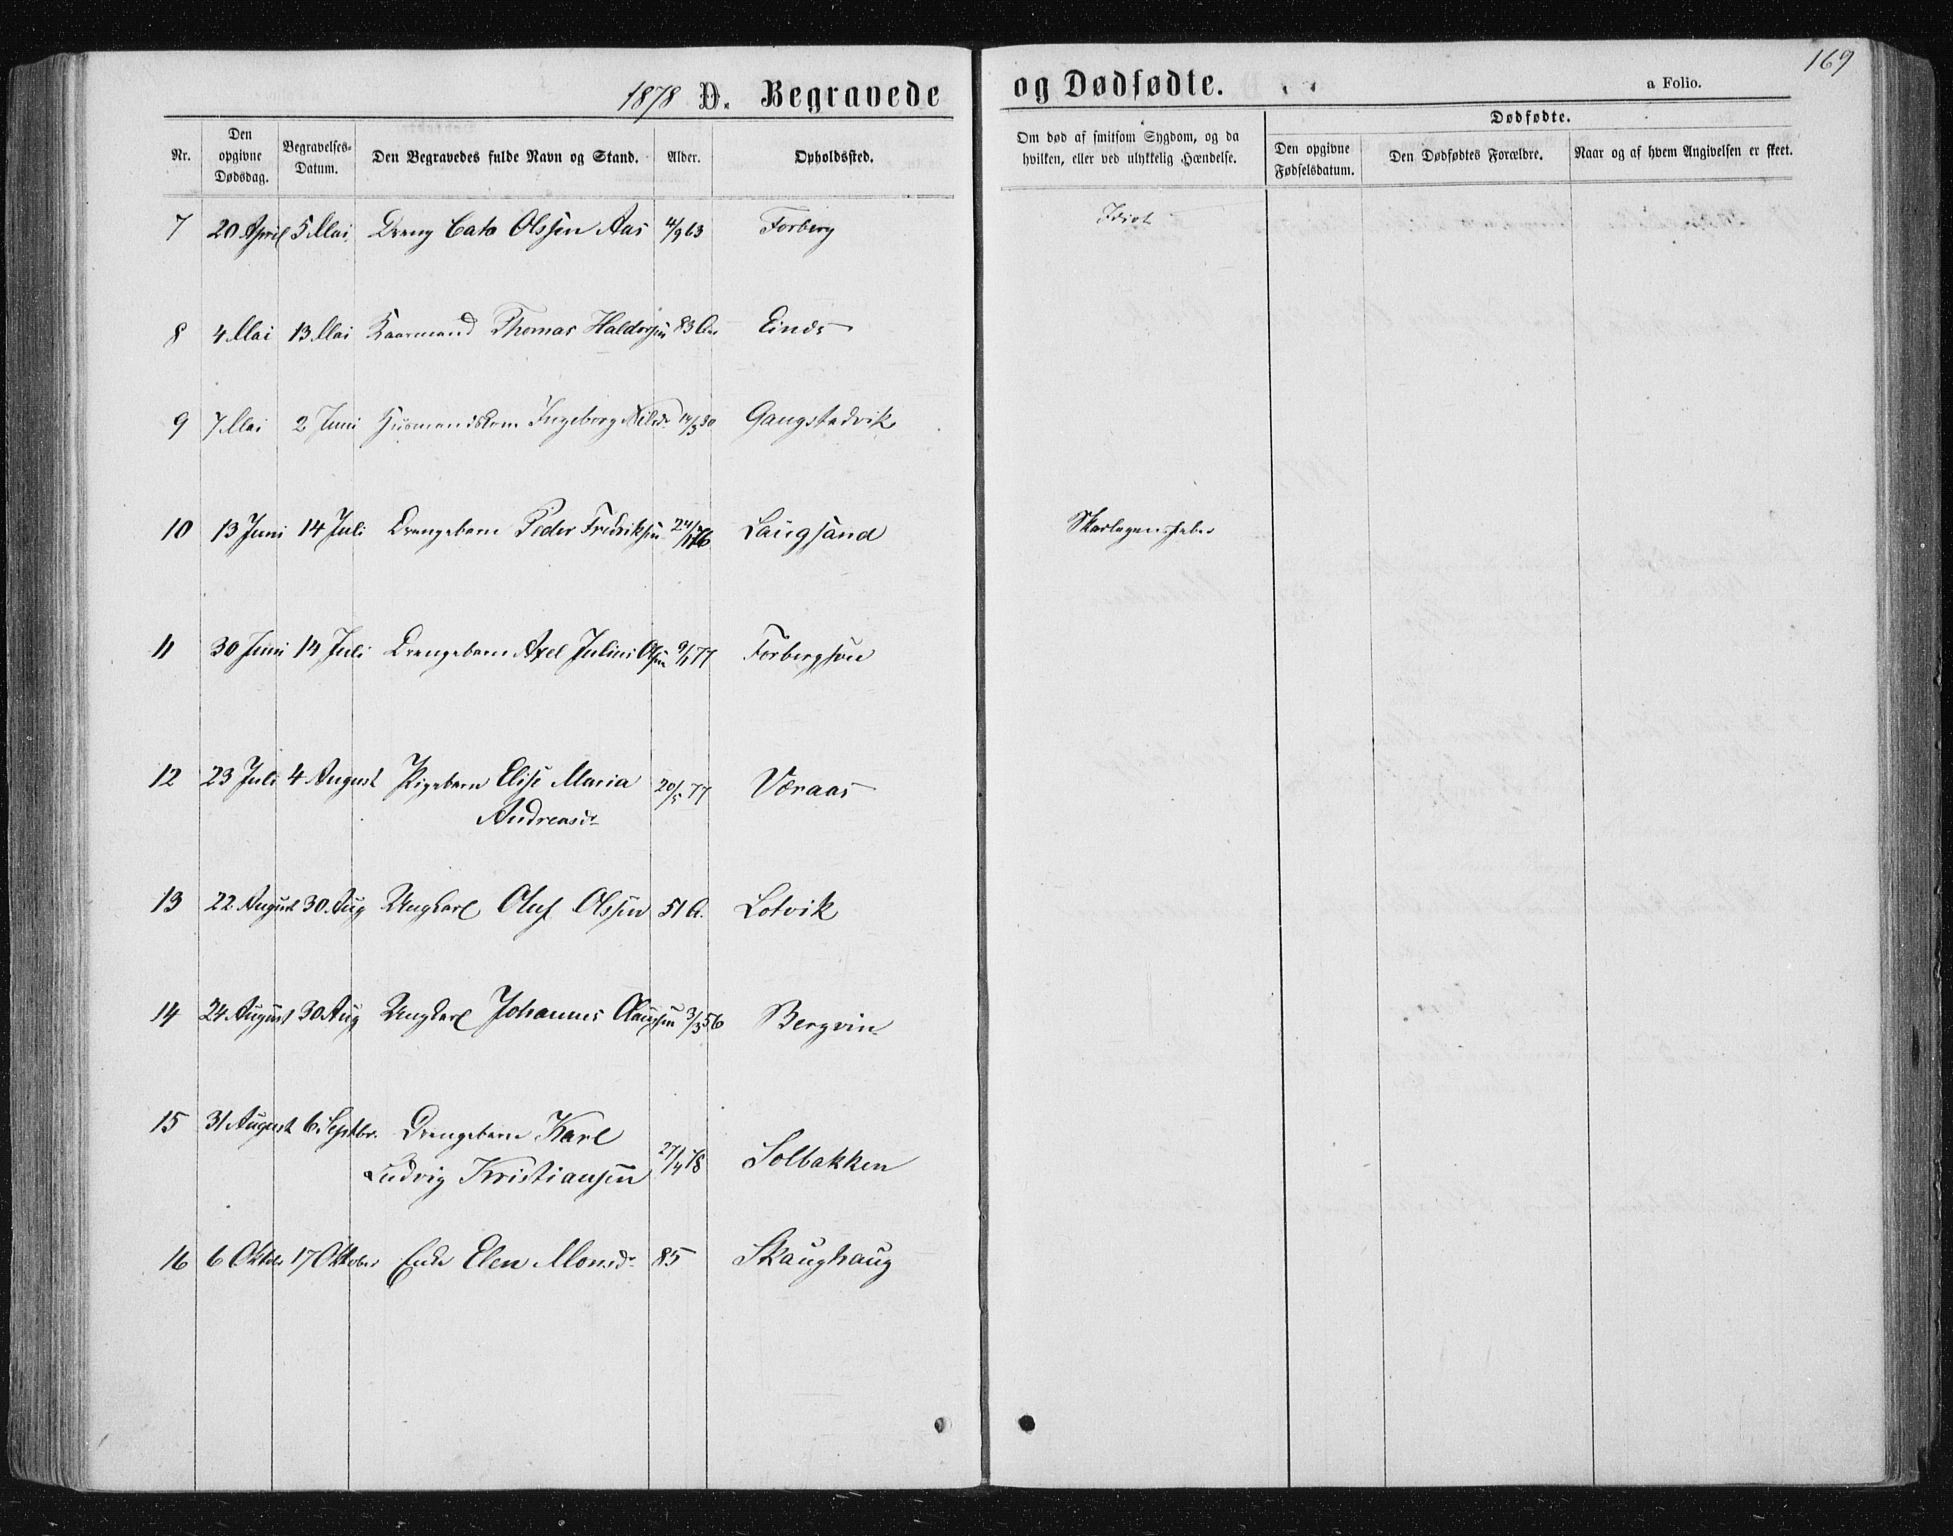 169
1878 D. Begravede og Dødfødte.
a Folio.
Nr. Den opgivne Dødsdag. Begravelses-Datum. Den Begravedes fulde Navn og Stand. Alder. Opholdssted. Om død af smitsom Sygdom, og da hvilken, eller ved ulykkelig Hændelse. Dødfødte. Den opgivne Fødselsdatum. Den Dødfødtes Forældre. Naar og af hvem Angivelsen er skeet.
7 20 April 5 Mai Dreng Cato Olssen Aas 4/9 63 Forberg Idiot
8 4 Mai 13 Mai Kaarmand Thomas Haldorsen 83 Aar Eines
9 7 Mai 2 Juni Husmandskone Ingeborg Nilsd. 14/3 30 Gangstadvik
10 13 Juni 14 Juli Drengebarn Peder Fredriksen 24/11 76 Langsand Skarlagensfeber
11 30 Juni 14 Juli Drengebarn Axel Julius Olsen 9/1 77 Forbergson
12 23 Juli 4 August Pigebarn Elise Maria 20/5 77 Væraas
Andreasdr
13 22 August 30. Aug Ungkarl Oluf Olssen 51 A. Lotvik
14 24 August 30 Aug Ungkarl Johannes Olaussen 3/3 56 Bergvin
15 31 August 6. Septbr. Drengebarn Karl
Ludvig Kristiansen 27/4 78 Solbakken
16 6 Oktobr 17 Oktober Enke Elen Monsdr 85 Skaughaug